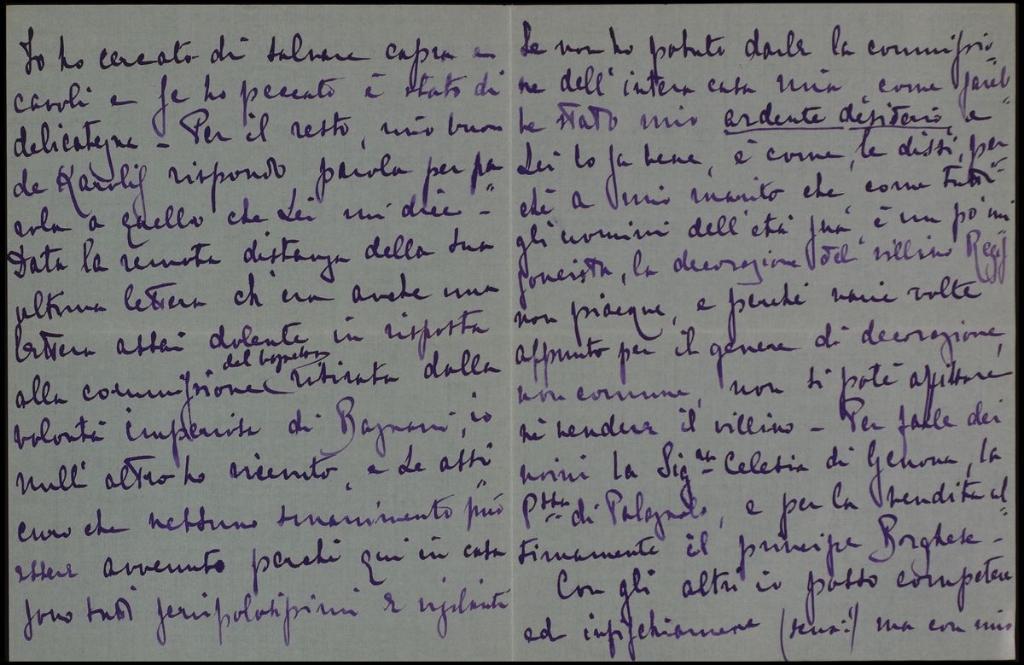 Io ho cercato di salvare capra e
cavoli e se ho peccato è stato di
delicatezza – Per il resto, mio buon
de Karolis rispondo parola per pa
rola a quello che Lei mi dice –
Data la remota distanza della sua
ultima lettera ch'era anche una
lettera assai dolente in risposta
alla commissione ritirata dalla
volontà imperiosa di Bazzani, io
null'altro ho ricevuto, e Le assi
curo che nessuno smarrimento può
essere avvenuto perché qui in casa
sono tutti scrupolosissimi e vigilanti
Se non ho potuto darle la commissio
ne dell'intera casa mia come sareb
be stato mio ardente desiderio, e
Lei lo sa bene, è come, le dissi, per
chè a mio marito che come tutti
gli uomini dell'età sua è un pò mi
soneista, la decorazione del villino
non piacque, e perché varie volte
appunto per il genere di decorazione,
non comune, non si potè affittare
nè vendere il villino – Per farle dei
nomi la Sig.ra Celesia di Genova, la
P.ssa di Palagonia, e per la vendita ul
timamente il principe Borghese –
Con gli altri io posso competere
ed infischiarmene (scusi!) ma con mio